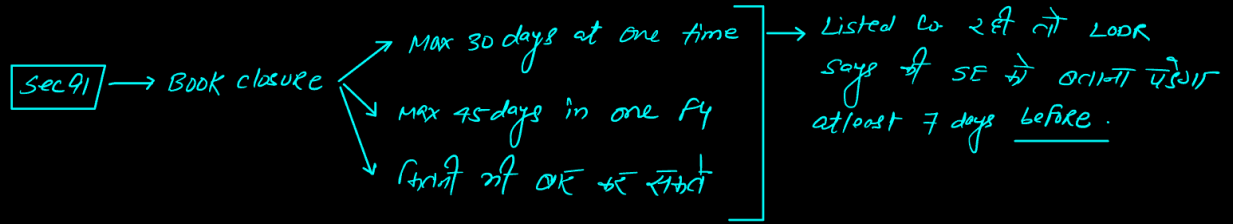 Sec 91 → Book closure
Max 30 days at one time
Max 45 days in one Fy
कितनी भी बार कर सकते
→ Listed Co रही तो LODR
says की SE को बताना पड़ेगा
atleast 7 days before.